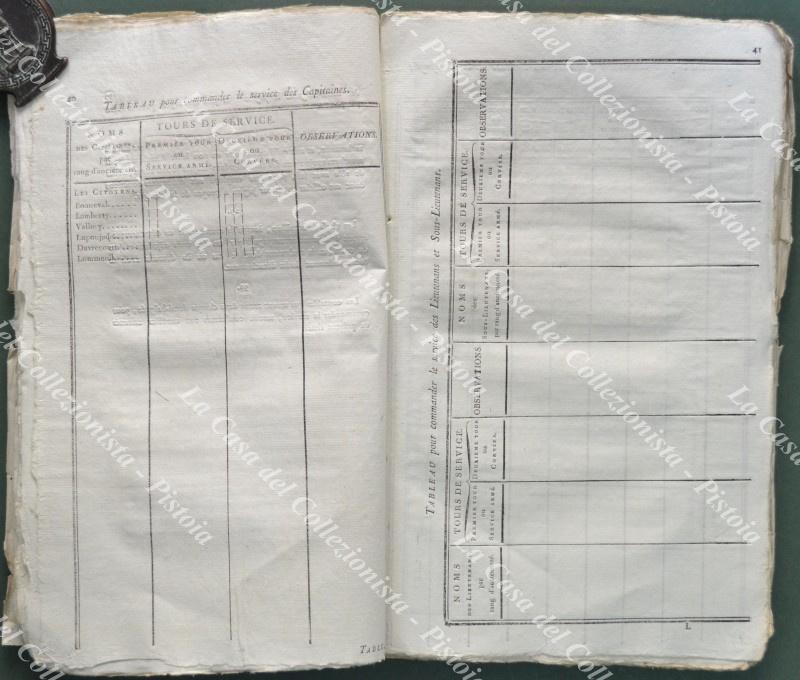 40
TABLEAU pour commander le service des Capitaines.
NOMS
DES CAPITAINES
par
rang d'ancienneté.
TOURS DE SERVICE.
PREMIER TOUR
ou
SERVICE ARMÉ.
DEUXIEME TOUR
ou
CORVÉES.
OBSERVATIONS.
LES CITOYENS
Bonneval.....
Lamberty.....
Valbrey.....
Davrecourt.....
TABLE
41
TABLEAU pour commander le service des Lieutenans et Sous-Lieutenans.
NOMS
DES LIEUTENANS
par
rang d'ancienneté.
TOURS DE SERVICE.
PREMIER TOUR
ou
SERVICE ARMÉ.
DEUXIEME TOUR
ou
CORVÉE.
OBSERVATIONS.
NOMS
des
SOUS-LIEUTENANS
par rang d'ancienneté.
TOURS DE SERVICE.
PREMIER TOUR
ou
SERVICE ARMÉ.
DEUXIEME TOUR
ou
CORVÉE.
OBSERVATIONS.
L
La Casa del Collezionista - Pistoia